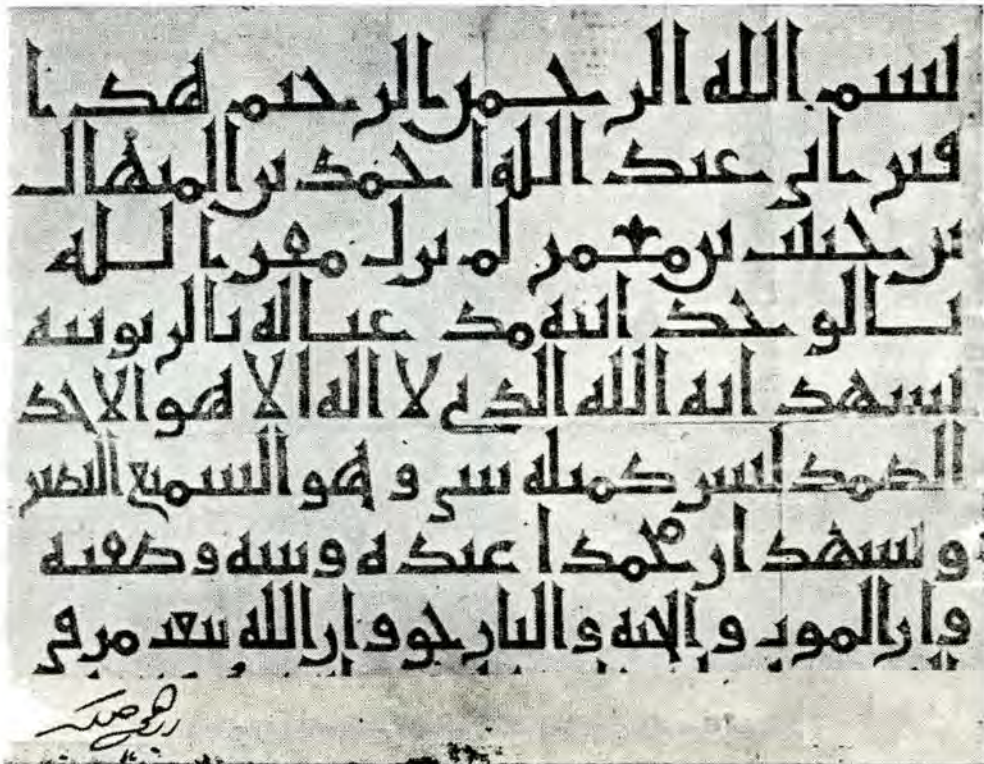 بسم الله الرحمن الرحيم هذا
قبر ابي عبد الله احمد بن المنهال
بن معمر لم يزل مقرا لله
بالوحدانيه مذعنا له بالربوبيه
يشهد انه الله الذي لا اله الا هو الاحد
الصمد ليس كمثله شي و هو السميع البصير
و يشهد ان محمدا عبده و نبيه و صفيه
و ان الموت و الجنه و النار حق و ان الله يبعث من في